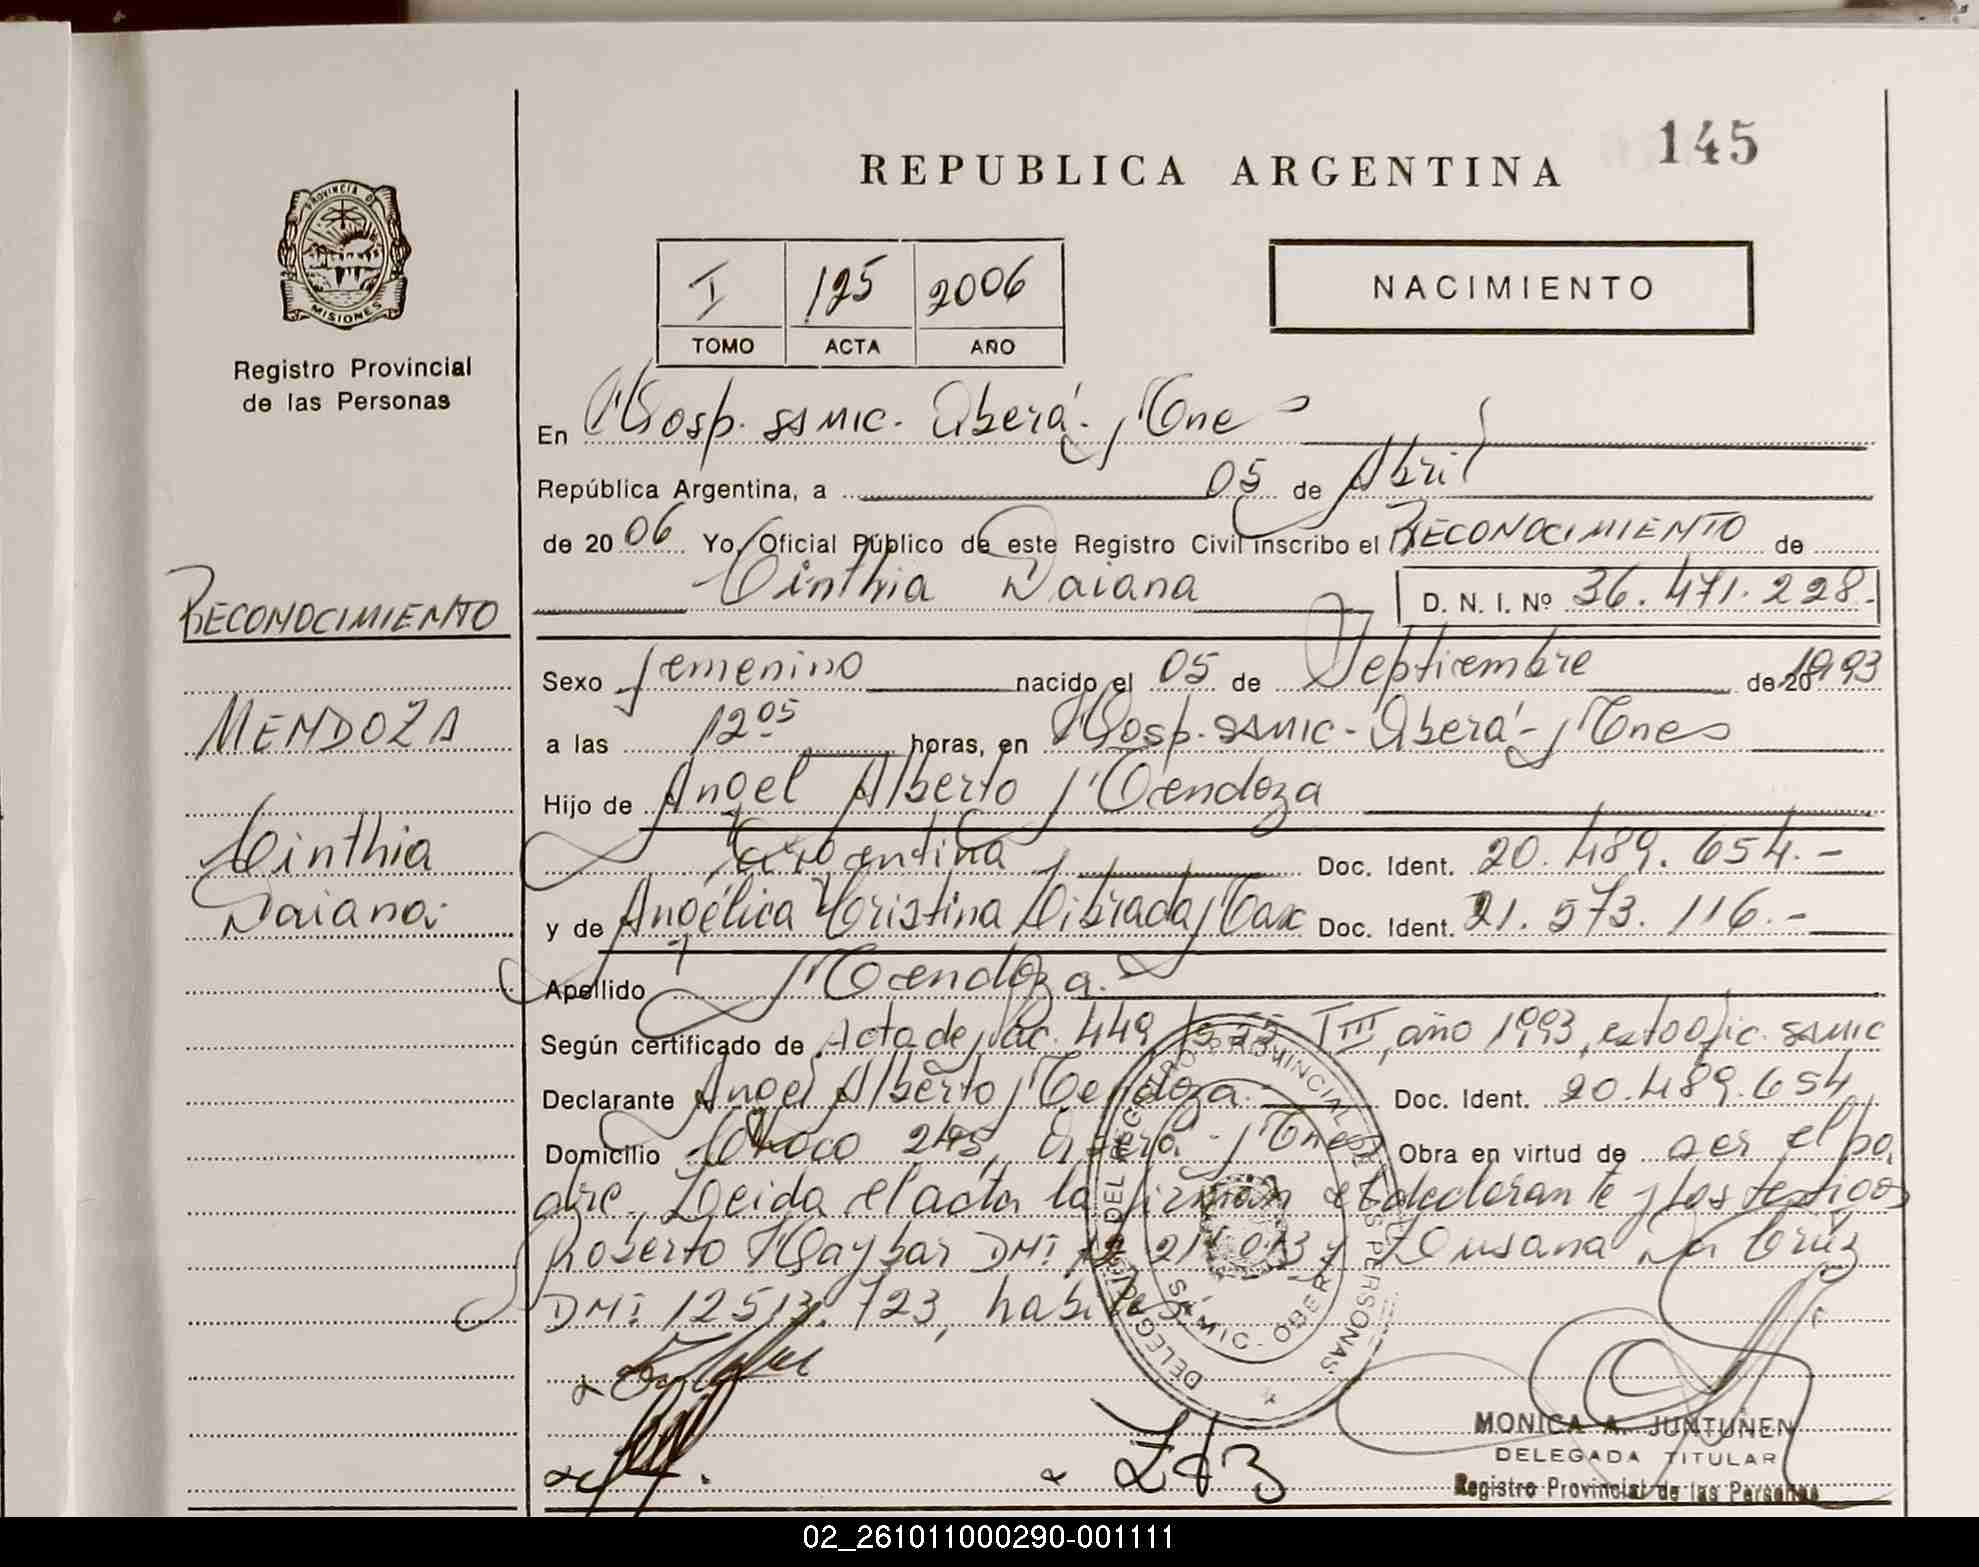 145
REPUBLICA ARGENTINA
PROVINCIA DE
MISIONES
Registro Provincial
de las Personas
I 125 2006
TOMO ACTA AÑO
NACIMIENTO
En Hosp. SAMIC. Oberá. Mnes
República Argentina, a 05 de Abril
de 2006 Yo, Oficial Público de este Registro Civil inscribo el RECONOCIMIENTO de
Cinthia Daiana D. N. I. Nº 36.471.228.-
RECONOCIMIENTO
Sexo femenino nacido el 05 de Septiembre de 20 1993
MENDOZA
a las 12 05 horas, en Hosp. SAMIC - Oberá - Mnes
Hijo de Angel Alberto Mendoza
Cinthia
Argentina Doc. Ident. 20.489.654.-
Daiana.
y de Angélica Cristina Librada Doc. Ident. 21.573.116.-
Apellido Mendoza.
Según certificado de Acta de Nac. 449 T III, año 1993, esta Ofic. SAMIC
Declarante Angel Alberto Mendoza. Doc. Ident. 20.489.654
Domicilio 245, Oberá - Mnes Obra en virtud de ser el pa
dre. Leida el acta la firman el declarante y los testigos
Roberto DMI y Susana Da Cruz
DMI 12513.723, habiles
DELEGACION DEL REGISTRO PROVINCIAL DE LAS PERSONAS
SAMIC - OBERA
MONICA A. JUNTUNEN
DELEGADA TITULAR
Registro Provincial de las Personas
02_261011000290-001111